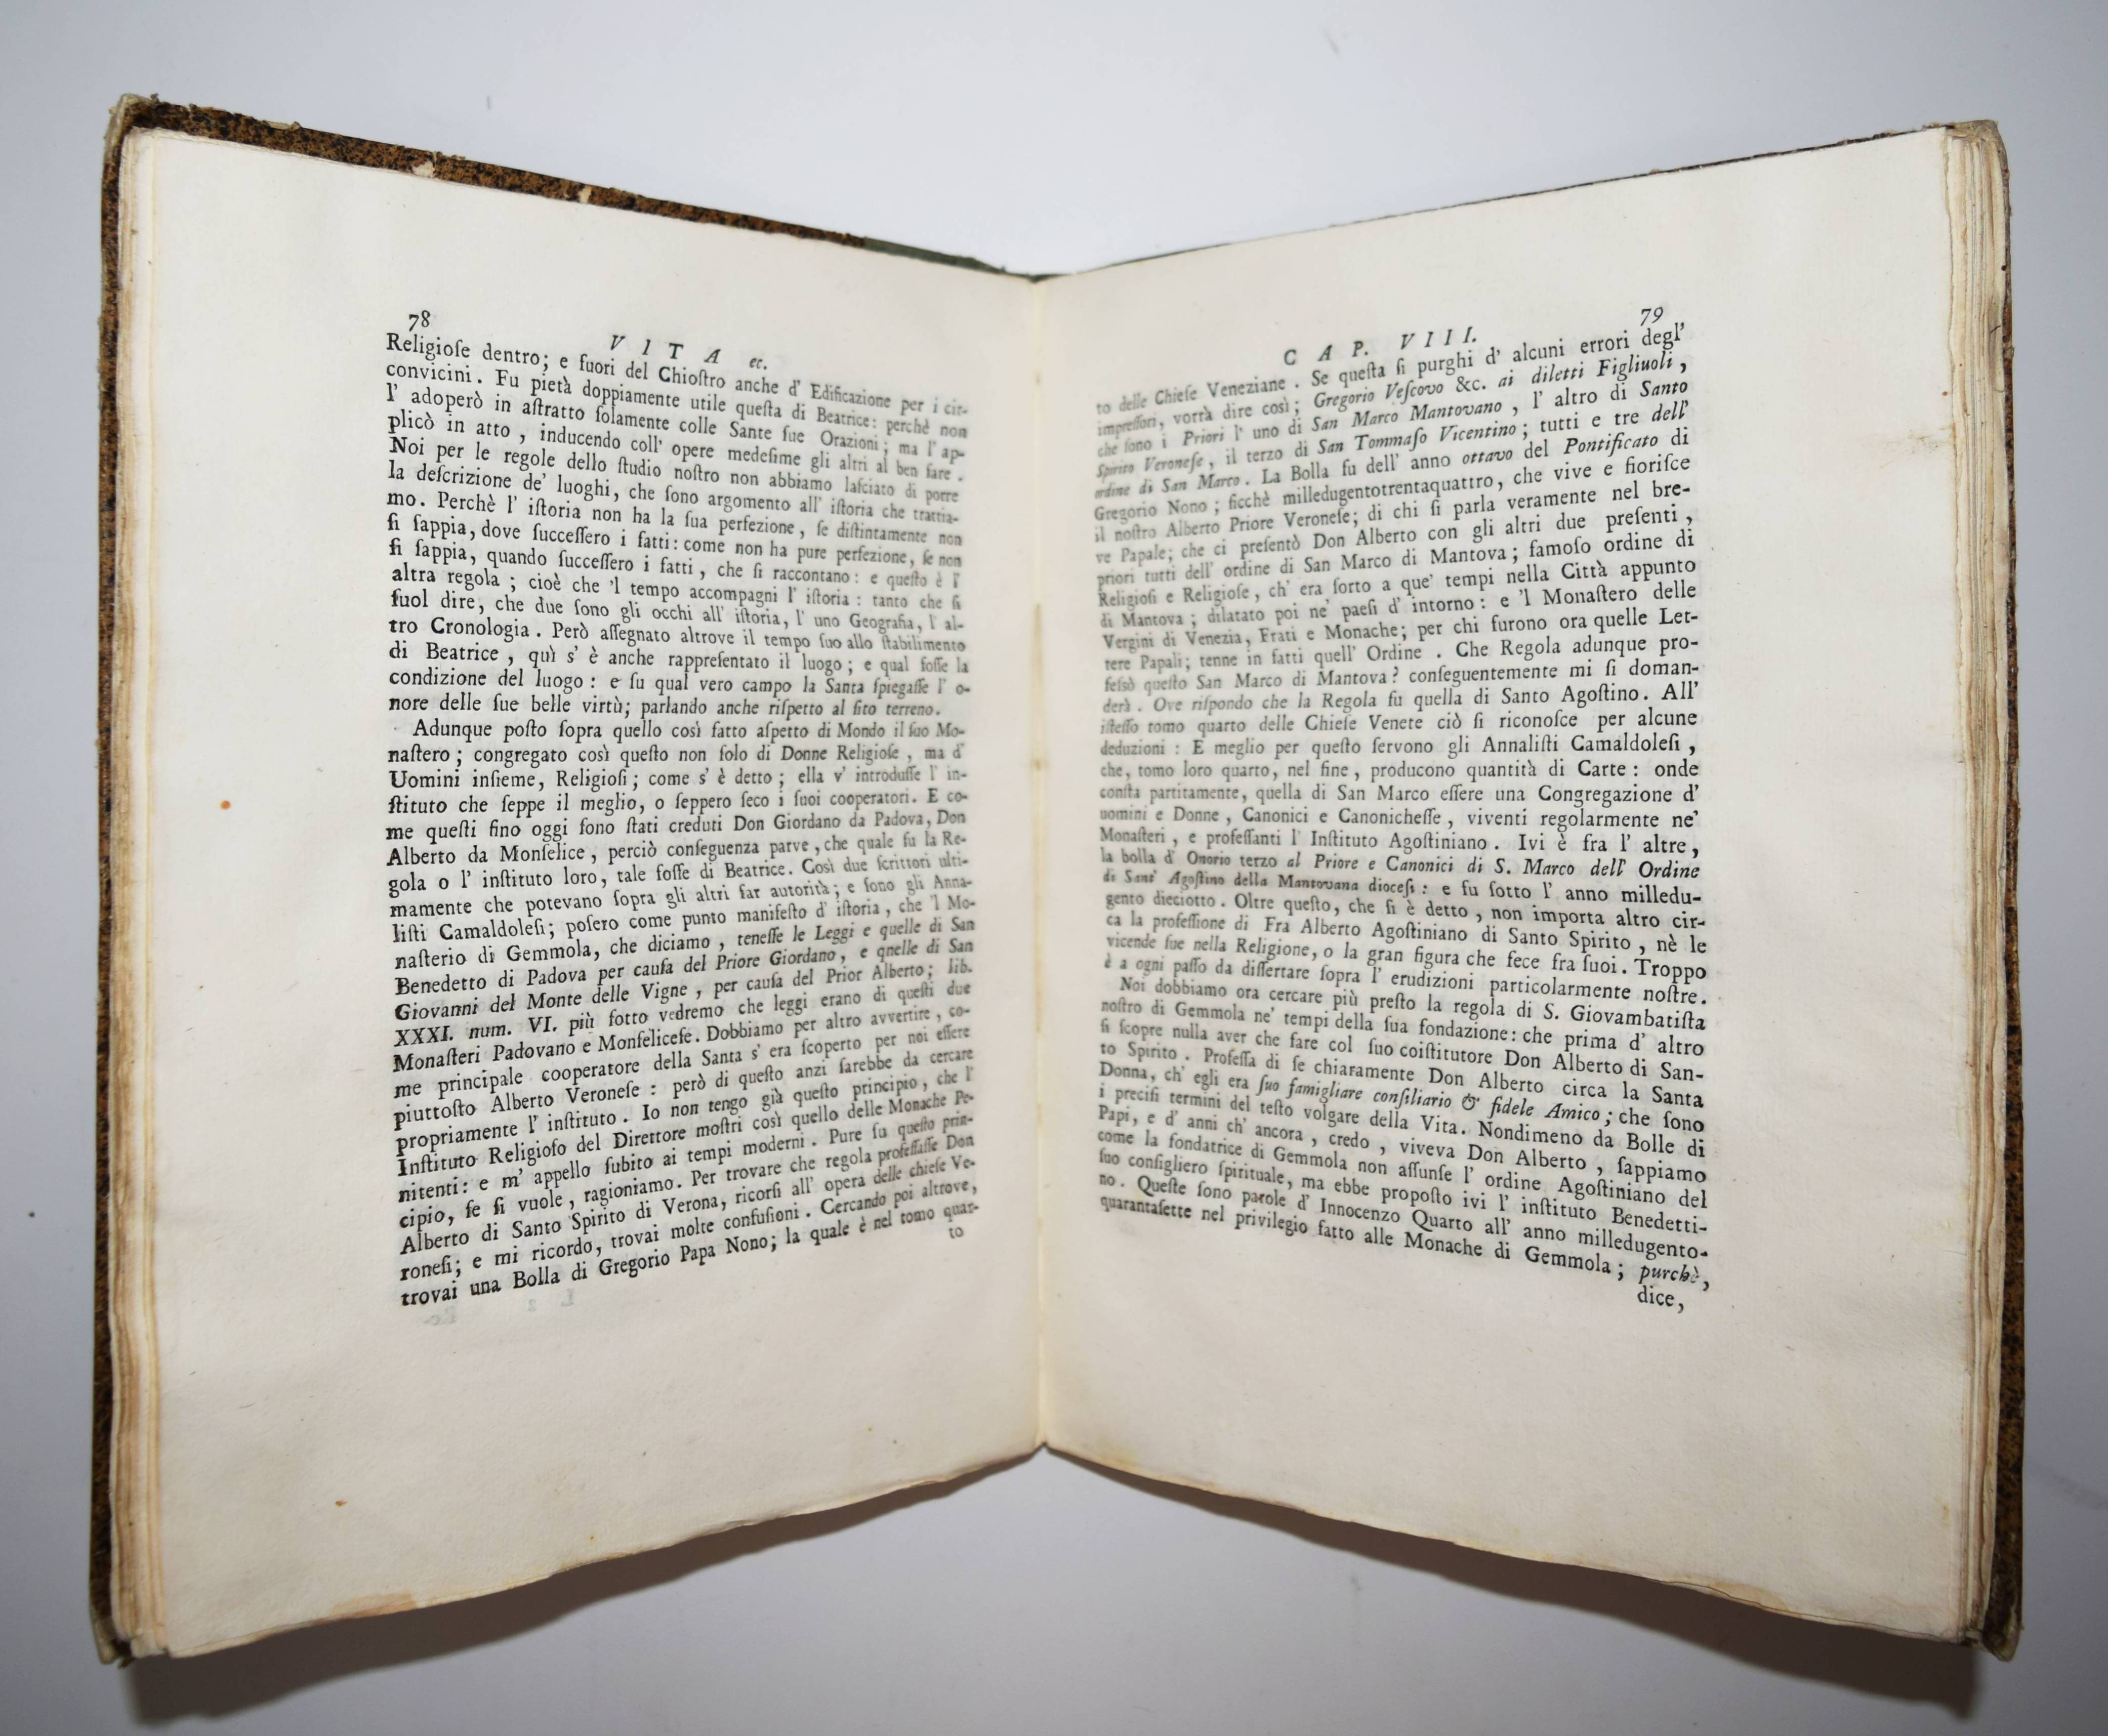 78
V I T A ec.
Religioſe dentro; e fuori del Chioſtro anche d' Edificazione per i cir-
convicini. Fu pietà doppiamente utile queſta di Beatrice: perchè non
l' adoperò in aſtratto ſolamente colle Sante ſue Orazioni; ma l' ap-
plicò in atto, inducendo coll' opere medeſime gli altri al ben fare.
Noi per le regole dello ſtudio noſtro non abbiamo laſciato di porre
la deſcrizione de' luoghi, che ſono argomento all' iſtoria che trattia-
mo. Perchè l' iſtoria non ha la ſua perfezione, ſe diſtintamente non
ſi ſappia, dove ſucceſſero i fatti: come non ha pure perfezione, ſe non
ſi ſappia, quando ſucceſſero i fatti, che ſi raccontano: e queſto è l'
altra regola; cioè che 'l tempo accompagni l' iſtoria: tanto che ſi
ſuol dire, che due ſono gli occhi all' iſtoria, l' uno Geografia, l' al-
tro Cronologia. Però aſſegnato altrove il tempo ſuo allo ſtabilimento
di Beatrice, quì s' è anche rappreſentato il luogo; e qual foſſe la
condizione del luogo: e ſu qual vero campo la Santa ſpiegaſſe l' o-
nore delle ſue belle virtù; parlando anche riſpetto al ſito terreno.
Adunque poſto ſopra quello così fatto aſpetto di Mondo il ſuo Mo-
naſtero; congregato così queſto non ſolo di Donne Religioſe, ma d'
Uomini inſieme, Religioſi; come s' è detto; ella v' introduſſe l' in-
ſtituto che ſeppe il meglio, o ſeppero ſeco i ſuoi cooperatori. E co-
me queſti fino oggi ſono ſtati creduti Don Giordano da Padova, Don
Alberto da Monſelice, perciò conſeguenza parve, che quale fu la Re-
gola o l' inſtituto loro, tale foſſe di Beatrice. Così due ſcrittori ulti-
mamente che potevano ſopra gli altri far autorità; e ſono gli Anna-
liſti Camaldoleſi; poſero come punto manifeſto d' iſtoria, che 'l Mo-
naſterio di Gemmola, che diciamo, teneſſe le Leggi e quelle di San
Benedetto di Padova per cauſa del Priore Giordano, e qnelle di San
Giovanni del Monte delle Vigne, per cauſa del Prior Alberto; lib.
XXXI. num. VI. più ſotto vedremo che leggi erano di queſti due
Monaſteri Padovano e Monſeliceſe. Dobbiamo per altro avvertire, co-
me principale cooperatore della Santa s' era ſcoperto per noi eſſere
piuttoſto Alberto Veroneſe: però di queſto anzi ſarebbe da cercare
propriamente l' inſtituto. Io non tengo già queſto principio, che l'
Inſtituto Religioſo del Direttore moſtri così quello delle Monache Pe-
nitenti: e m' appello ſubito ai tempi moderni. Pure ſu queſto prin-
cipio, ſe ſi vuole, ragioniamo. Per trovare che regola profeſſaſſe Don
Alberto di Santo Spirito di Verona, ricorſi all' opera delle chieſe Ve-
roneſi; e mi ricordo, trovai molte confuſioni. Cercando poi altrove,
trovai una Bolla di Gregorio Papa Nono; la quale è nel tomo quar-
to
79
C A P. V I I I.
to delle Chieſe Veneziane. Se queſta ſi purghi d' alcuni errori degl'
impreſſori, vorrà dire così; Gregorio Veſcovo &c. ai diletti Figliuoli,
che ſono i Priori l' uno di San Marco Mantovano, l' altro di Santo
Spirito Veroneſe, il terzo di San Tommaſo Vicentino; tutti e tre dell'
ordine di San Marco. La Bolla fu dell' anno ottavo del Pontificato di
Gregorio Nono; ſicchè milledugentotrentaquattro, che vive e fioriſce
il noſtro Alberto Priore Veroneſe; di chi ſi parla veramente nel bre-
ve Papale; che ci preſentò Don Alberto con gli altri due preſenti,
priori tutti dell' ordine di San Marco di Mantova; famoſo ordine di
Religioſi e Religioſe, ch' era ſorto a que' tempi nella Città appunto
di Mantova; dilatato poi ne' paeſi d' intorno: e 'l Monaſtero delle
Vergini di Venezia, Frati e Monache; per chi furono ora quelle Let-
tere Papali; tenne in fatti quell' Ordine. Che Regola adunque pro-
feſsò queſto San Marco di Mantova? conſeguentemente mi ſi doman-
derà. Ove riſpondo che la Regola fu quella di Santo Agoſtino. All'
iſteſſo tomo quarto delle Chieſe Venete ciò ſi riconoſce per alcune
deduzioni: E meglio per queſto ſervono gli Annaliſti Camaldoleſi,
che, tomo loro quarto, nel fine, producono quantità di Carte: onde
conſta partitamente, quella di San Marco eſſere una Congregazione d'
uomini e Donne, Canonici e Canonicheſſe, viventi regolarmente ne'
Monaſteri, e profeſſanti l' Inſtituto Agoſtiniano. Ivi è fra l' altre,
la bolla d' Onorio terzo al Priore e Canonici di S. Marco dell' Ordine
di Sant' Agoſtino della Mantovana diocesi: e fu ſotto l' anno milledu-
gento dieciotto. Oltre queſto, che ſi è detto, non importa altro cir-
ca la profeſſione di Fra Alberto Agoſtiniano di Santo Spirito, nè le
vicende ſue nella Religione, o la gran figura che fece fra ſuoi. Troppo
è a ogni paſſo da diſſertare ſopra l' erudizioni particolarmente noſtre.
Noi dobbiamo ora cercare più preſto la regola di S. Giovambatiſta
noſtro di Gemmola ne' tempi della ſua fondazione: che prima d' altro
ſi ſcopre nulla aver che fare col ſuo coiſtitutore Don Alberto di San-
to Spirito. Profeſſa di ſe chiaramente Don Alberto circa la Santa
Donna, ch' egli era ſuo famigliare conſiliario & fidele Amico; che ſono
i preciſi termini del teſto volgare della Vita. Nondimeno da Bolle di
Papi, e d' anni ch' ancora, credo, viveva Don Alberto, ſappiamo
come la fondatrice di Gemmola non aſſunſe l' ordine Agoſtiniano del
ſuo conſigliero ſpirituale, ma ebbe propoſto ivi l' inſtituto Benedetti-
no. Queſte ſono parole d' Innocenzo Quarto all' anno milledugento-
quarantaſette nel privilegio fatto alle Monache di Gemmola; purchè,
dice,